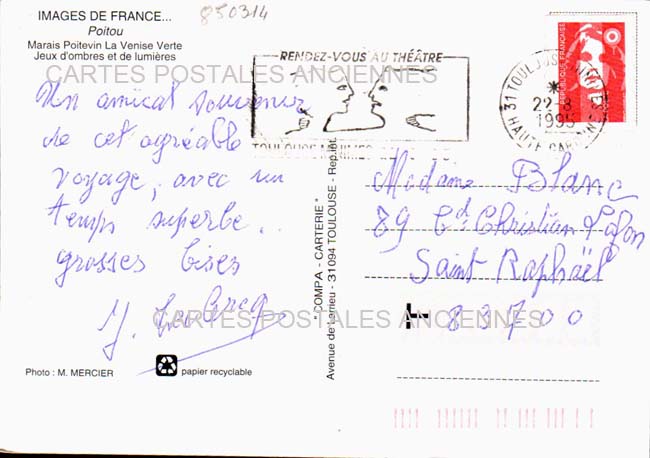 IMAGES DE FRANCE...
Poitou
Marais Poitevin La Venise Verte
Jeux d'ombres et de lumières
850314
CARTES POSTALES ANCIENNES
RENDEZ-VOUS AU THÉÂTRE
31 TOULOUSE
22-8
1995
HAUTE GARONNE
RÉPUBLIQUE FRANÇAISE
Un amical souvenir
de cet agréable
voyage, avec un
temps superbe...
grosses bises
Photo : M. MERCIER
papier recyclable
" COMPA - CARTERIE "
Avenue de Larrieu - 31094 TOULOUSE - Rep.int.
Madame Blanc
89 Bd Christian Lafon
Saint Raphaël
83700
CARTES POSTALES ANCIENNES